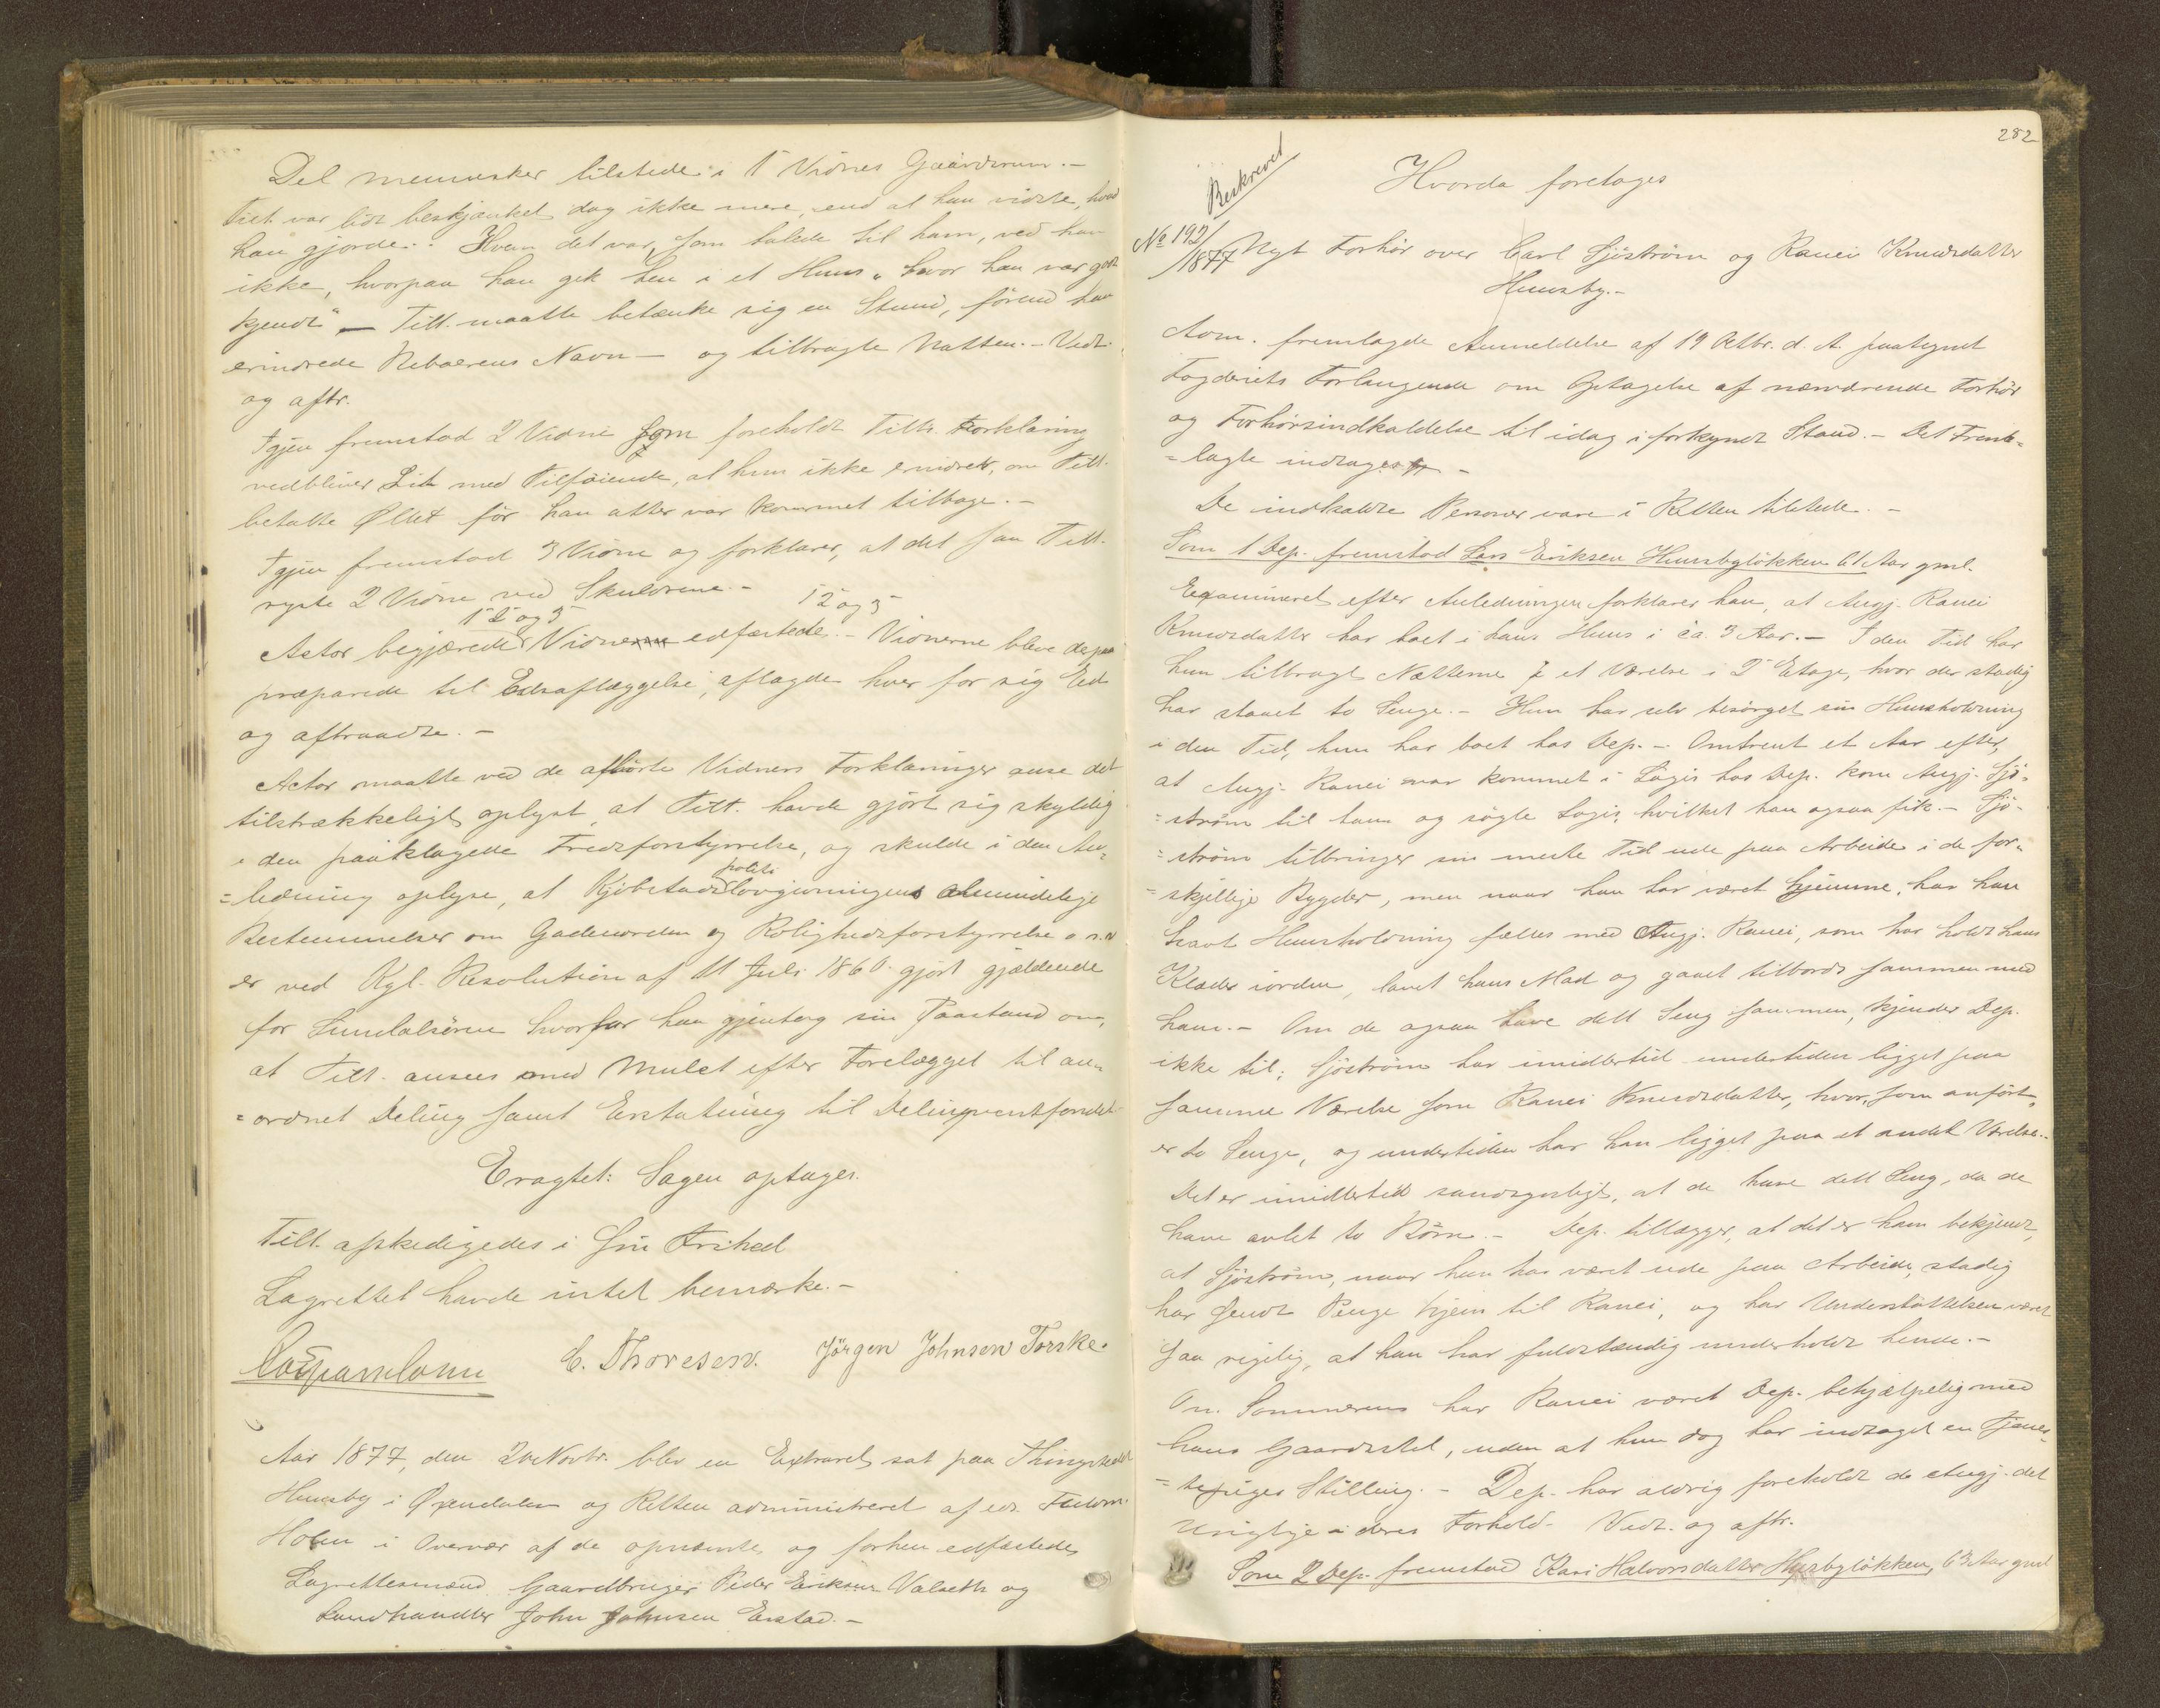 Del mennesker tilstede i 1 Vidnes Gaardsrum.-
Tilt. var lidt beskjænket dog ikke mere, end at han vidste, hvad
han gjorde.. Hvem det var, som talede til ham, ved han
ikke, hvorpaa han gik hen i et Huus "hvor han var godt
kjendt" - Tilt. maatte betænke sig en Stund, førend han
erindrede Beboerens Navn - og tilbragte Natten. - Vedt.
og aftr.
Igjen fremstod 2 Vidne som foreholdt Tilts. Forklaring
vedbliver Sit med Tilføiende, at hun ikke erindrer, om Tilt.
betalte Øllet før han atter var kommet tilbage. -
Igjen fremstod 3 Vidne og forklarer, at det saa Tilt.
ryste 2 Vidne ved Skuldrene. -
1 2 og 3 1 2 og 3
Actor begjærede Vidnerne edfæstede. - Vidnerne bleve derpaa
præparede til Edsaflæggelse, aflagde hver for sig Ed
og aftraadte. -
Actor maatte ved de afhørte Vidners Forklaringer anse det
tilstrækkeligt oplyst, at Tilt. havde gjort sig skyldig
i den paaklagede Fredsforstyrrelse, og skulde i den An-
politi
=ledning oplyse, at Kjøbstadslovgivningens almindelige
Bestemmelser om Gadeuorden og Rolighedsforstyrrelse o.s.v.
er ved Kgl. Resolution af 11 Juli 1860 gjort gjældende
for Sundalsøren hvorfor han gjentog sin Paastand om,
at Tilt. ansees med Mulct efter Forelægget til an-
=ordnet Deling samt Erstatning til Delinqventfondet.
Eragtet: Sagen optages.
Tilt. afskedigedes i Sin Frihed
Lagrettet havde intet bemærke. -
C. Thoresen. Jörgen Johnsen Torske.
Aar 1877, den 20 Novbr. blev en Extraret sat paa Thingstedet
Huusby i Øxendalen og Retten administreret af edr. Fuldm.
Holm i Overvær af de opnævnte og forhen edfæstede
Lagrettesmænd Gaardbruger Peder Eriksen Valseth og
Landhandler John Johnsen Erstad. -
282
Hvorda foretages
Beskrevet
No 192/1877 Nyt Forhør over Carl Sjöström og Ranei Knudsdatter
Huusby. -
Adm. fremlagde Anmeldelse af 19 Oktbr. d. A. paategnet
Fogderiets Forlangende om Optagelse af nærværende Forhør
og Forhørsindkaldelse til idag i forkyndt Stand. - Det Frem-
=lagte indtages. -
De indkaldte Personer vare i Retten tilstede. -
Som 1 Dep. fremstod Lars Eriksen Huusbyløkken 61 Aar gml.
Examineret efter Anledningen forklarer han, at Angj. Ranei
Knudsdatter har boet i hans Huus i ca. 3 Aar. - I den Tid har
hun tilbragt Nætterne i et Værelse i 2 Etage, hvor der stadig
har staaet to Senge. - Hun har selv besørget sin Huusholdning
i den Tid, hun har boet hos Dep. - Omtrent et Aar efter,
at Angj. Ranei var kommet i Logis hos Dep. kom Angj. Sjö-
=ström til ham og søgte Logis, hvilket han ogsaa fik. - Sjö-
=ström tilbringer sin meste Tid ude paa Arbeide i de for-
=skjellige Bygder, men naar han har været hjemme, har han
havt Huusholdning fælles med Angj. Ranei, som har holdt hans
Klæder iorden, lavet hans Mad og gaaet tilbords sammen med
ham. - Om de ogsaa have delt Seng sammen, kjender Dep.
ikke til; Sjöström har imidlertid undertiden ligget paa
samme Værelse som Ranei Knudsdatter, hvor, som anført,
er to Senge, og undertiden har han ligget paa et andet Værelse. -
Det er imidlertid sandsynligt, at de have delt Seng, da de
have avlet to Børn. - Dep. tillægger, at det er ham bekjendt,
at Sjöström, naar han har været ude paa Arbeide, stadig
har sendt Penge hjem til Ranei, og har Understøttelsen været
saa rigelig, at han har fuldstændig underholdt hende. -
Om Sommeren har Ranei været Dep. behjælpelig med
hans Gaardsstel, uden at hun dog har indtaget en Tjene-
=stepiges Stilling. - Dep. har aldrig foreholdt de Angj. det
Urigtige i deres Forhold - Vedt. og aftr.
Som 2 Dep. fremstod Kari Halvorsdatter Huusbyløkken, 63 Aar gml